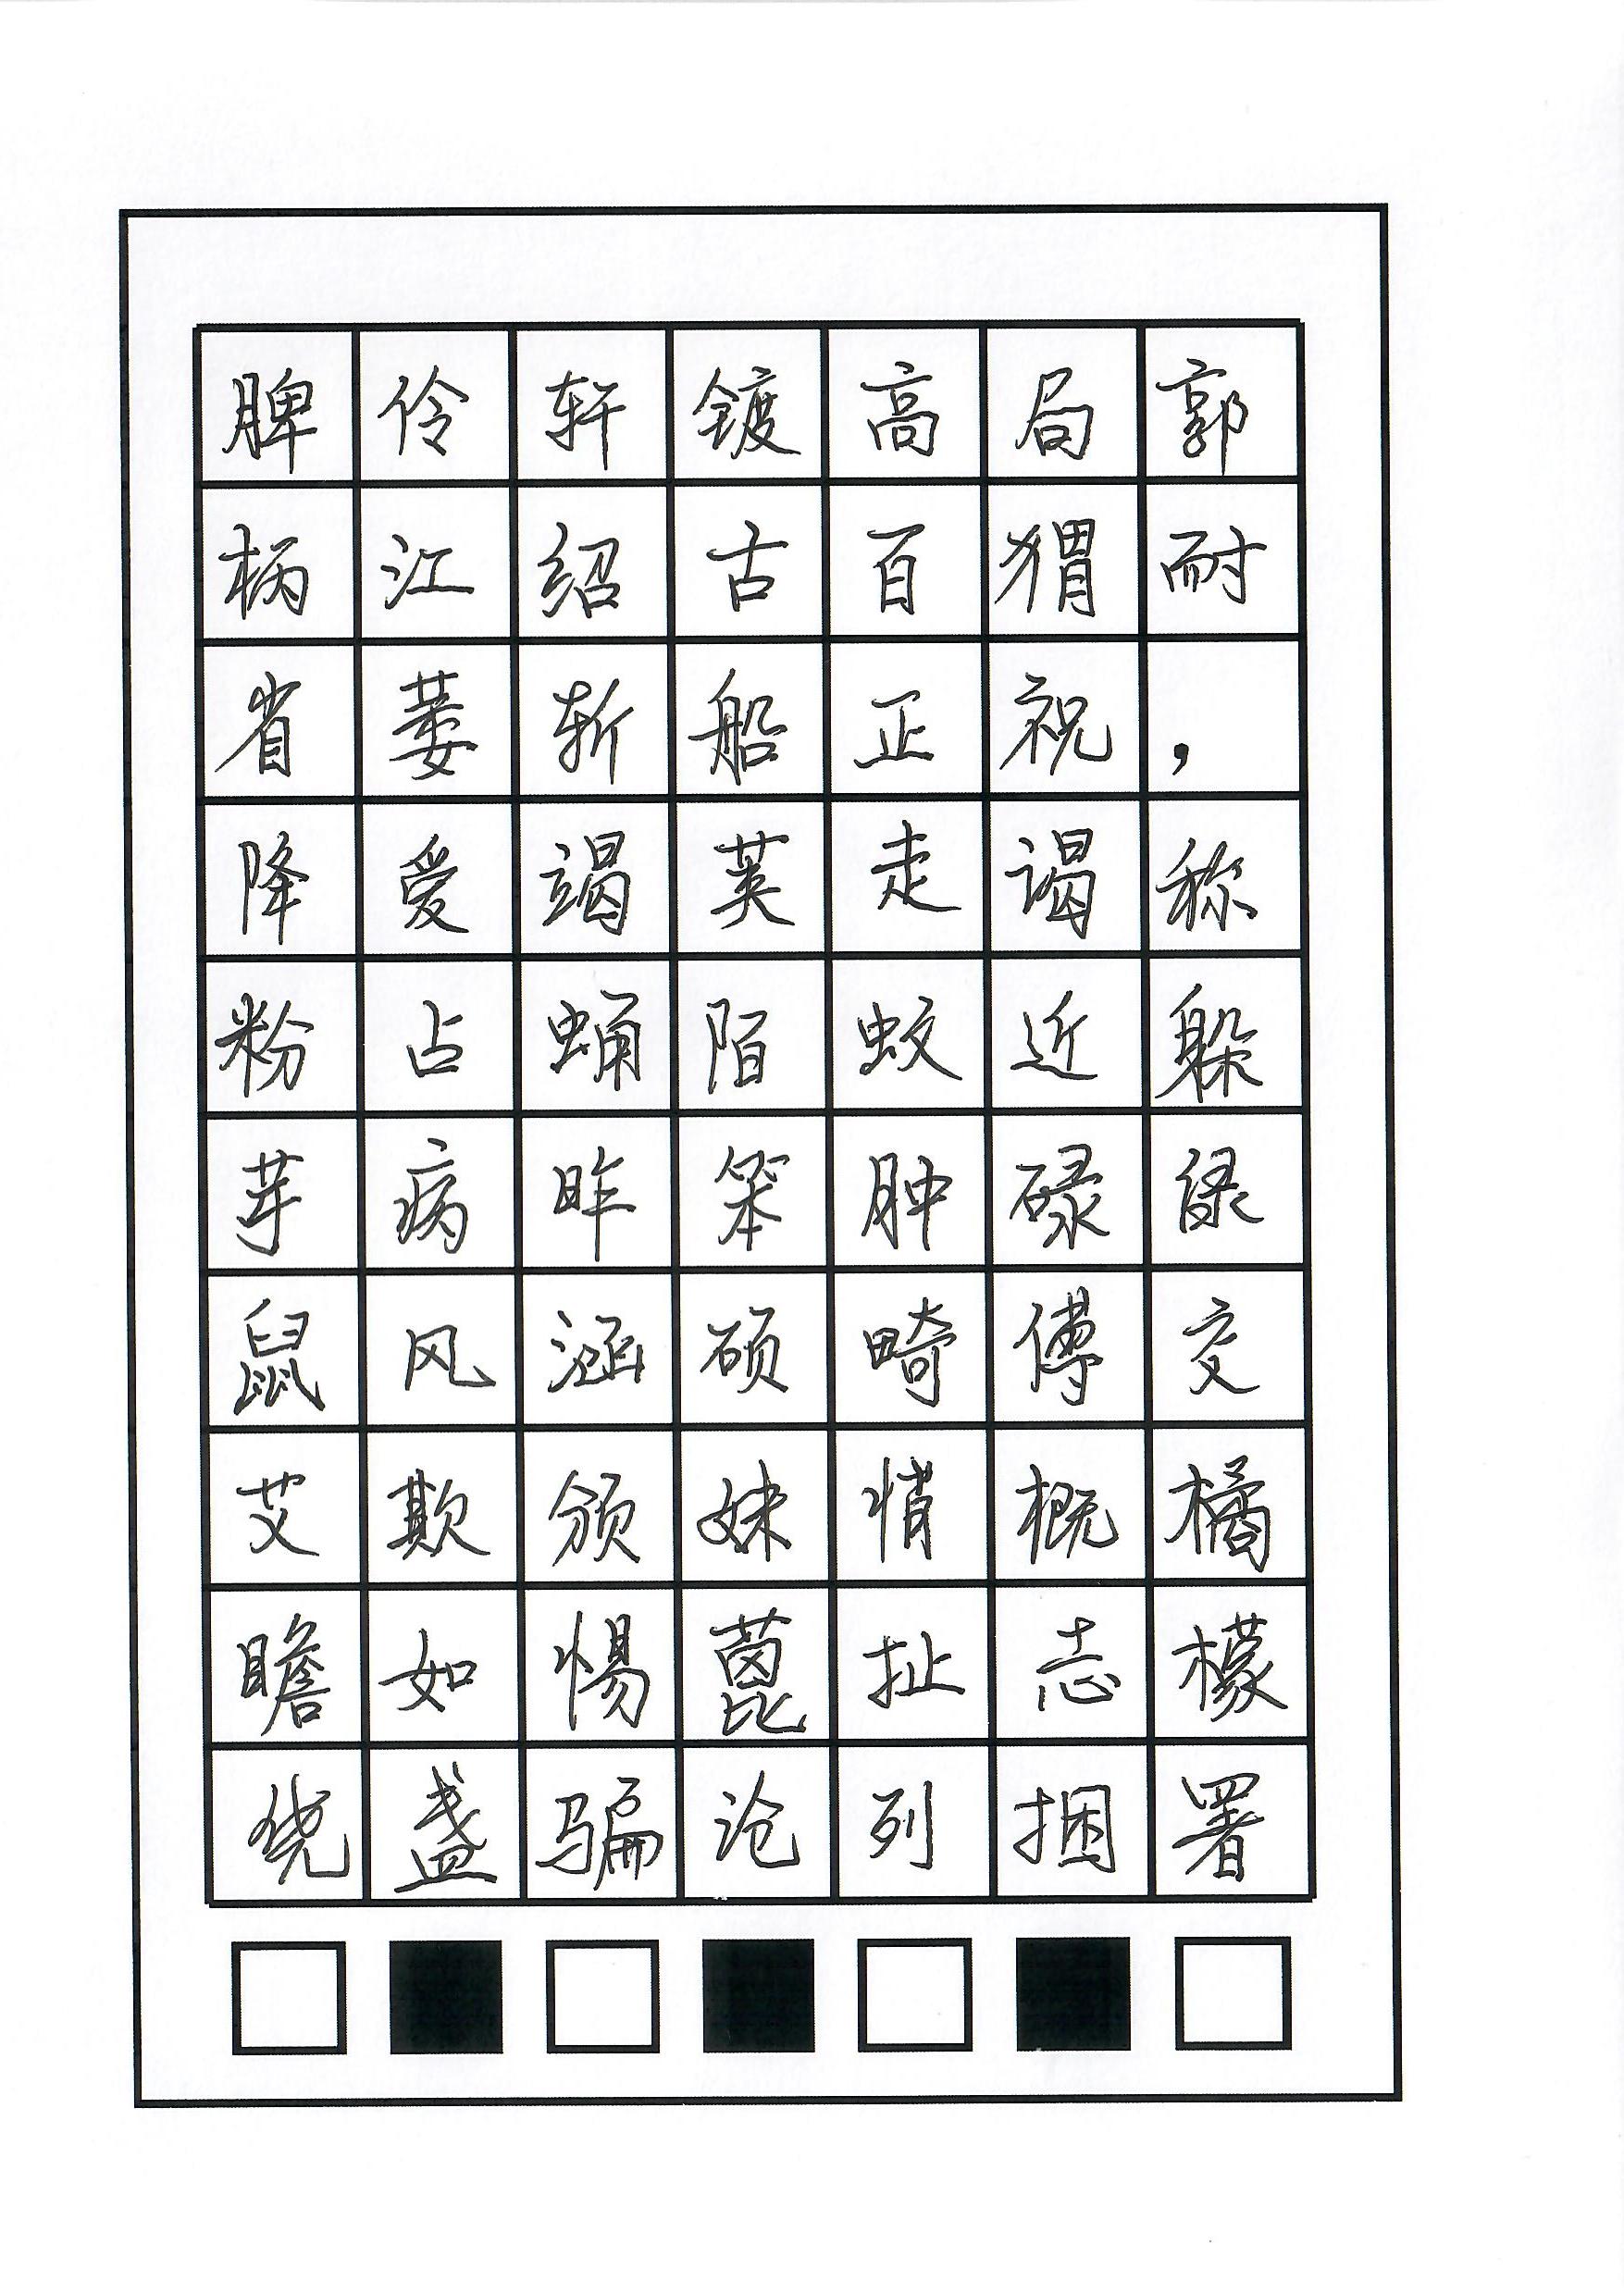 脾伶轩镀高局郭
柄江绍古百猬耐
省蒌斩船正祝，
降爱竭荚走谒称
粉占蛹陌蚊近躲
芽病昨笨肿碌
鼠风涵硕畸傅交
艾欺颁妹悄概橘
瞻如惕蓖扯志檬
绕盏骗沧列捆署